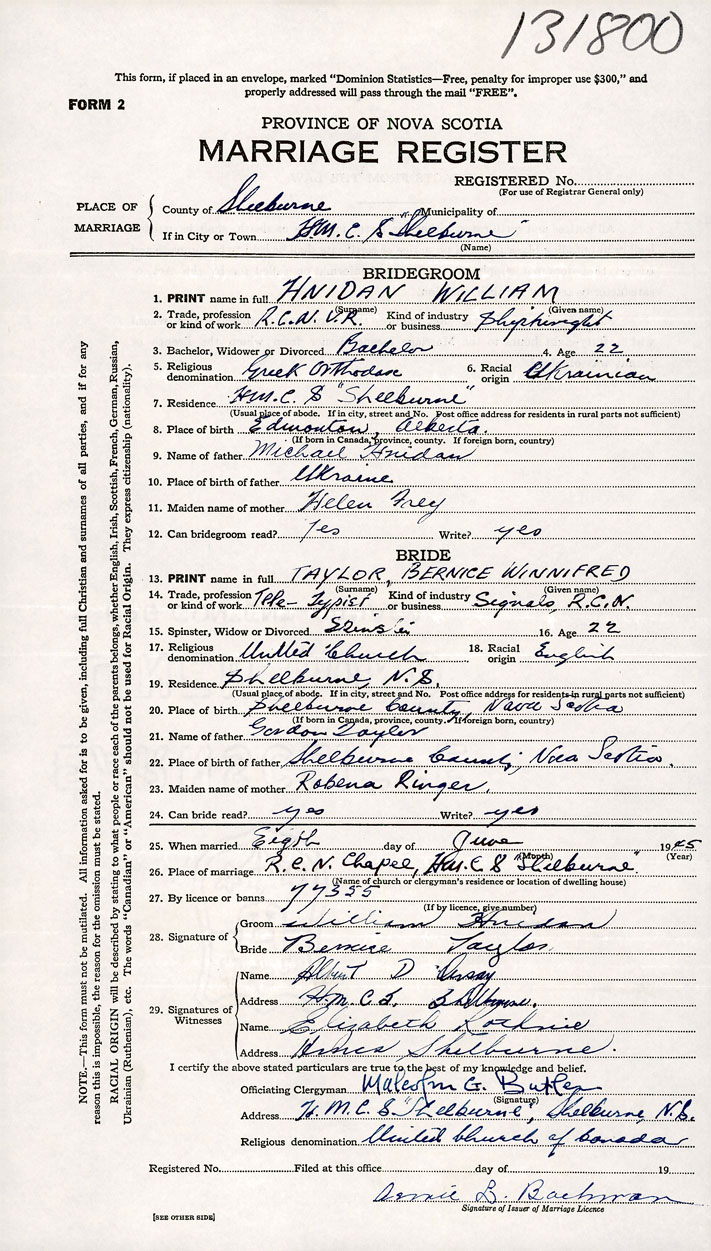 131800
This form, if placed in an envelope, marked "Dominion Statistics—Free, penalty for improper use $300," and
properly addressed will pass through the mail "FREE".
FORM 2
PROVINCE OF NOVA SCOTIA
MARRIAGE REGISTER
REGISTERED No.
(For use of Registrar General only)
PLACE OF MARRIAGE
County of Shelburne Municipality of
If in City or Town H.M.C.S "Shelburne"
(Name)
BRIDEGROOM
1. PRINT name in full HNIDAN WILLIAM
(Surname) (Given name)
2. Trade, profession or kind of work R.C.N.V.R. Kind of industry or business Shipwright
3. Bachelor, Widower or Divorced Bachelor 4. Age 22
5. Religious denomination Greek Orthodox 6. Racial origin Ukrainian
7. Residence H.M.C.S "Shelburne"
(Usual place of abode. If in city, street and No. Post office address for residents in rural parts not sufficient)
8. Place of birth Edmonton, Alberta.
(If born in Canada, province, county. If foreign born, country)
9. Name of father Michael Hnidan
10. Place of birth of father Ukraine
11. Maiden name of mother Helen Frey
12. Can bridegroom read? Yes Write? yes
BRIDE
13. PRINT name in full TAYLOR, BERNICE WINNIFRED
(Surname) (Given name)
14. Trade, profession or kind of work Tele-Typist Kind of industry or business Signals, R.C.N.
15. Spinster, Widow or Divorced Spinster 16. Age 22
17. Religious denomination United Church 18. Racial origin English
19. Residence Shelburne, N.S.
(Usual place of abode. If in city, street and No. Post office address for residents in rural parts not sufficient)
20. Place of birth Shelburne County, Nova Scotia
(If born in Canada, province, county. If foreign born, country)
21. Name of father Gordon Taylor
22. Place of birth of father Shelburne County, Nova Scotia.
23. Maiden name of mother Robena Ringer
24. Can bride read? yes Write? yes
25. When married Eigth day of June 1945
(Month) (Year)
26. Place of marriage R.C.N. Chapel, H.M.C.S "Shelburne"
(Name of church or clergyman's residence or location of dwelling house)
27. By licence or banns 77355
(If by licence, give number)
28. Signature of
Groom William Hnidan
Bride Bernice Taylor
29. Signatures of Witnesses
Name Albert D
Address H.M.C.S. Shelburne.
Name Elizabeth
Address HMCS Shelburne.
I certify the above stated particulars are true to the best of my knowledge and belief.
Officiating Clergyman Malcolm G. Butler
(Signature)
Address H.M.C.S "Shelburne", Shelburne, N.S.
Religious denomination United Church of Canada
Registered No. Filed at this office day of 19
B. Bachman
Signature of Issuer of Marriage Licence
[SEE OTHER SIDE]
NOTE.—This form must not be mutilated. All information asked for is to be given, including full Christian and surnames of all parties, and if for any
reason this is impossible, the reason for the omission must be stated.
RACIAL ORIGIN will be described by stating to what people or race each of the parents belongs, whether English, Irish, Scottish, French, German, Russian,
Ukrainian (Ruthenian), etc. The words "Canadian" or "American" should not be used for Racial Origin. They express citizenship (nationality).